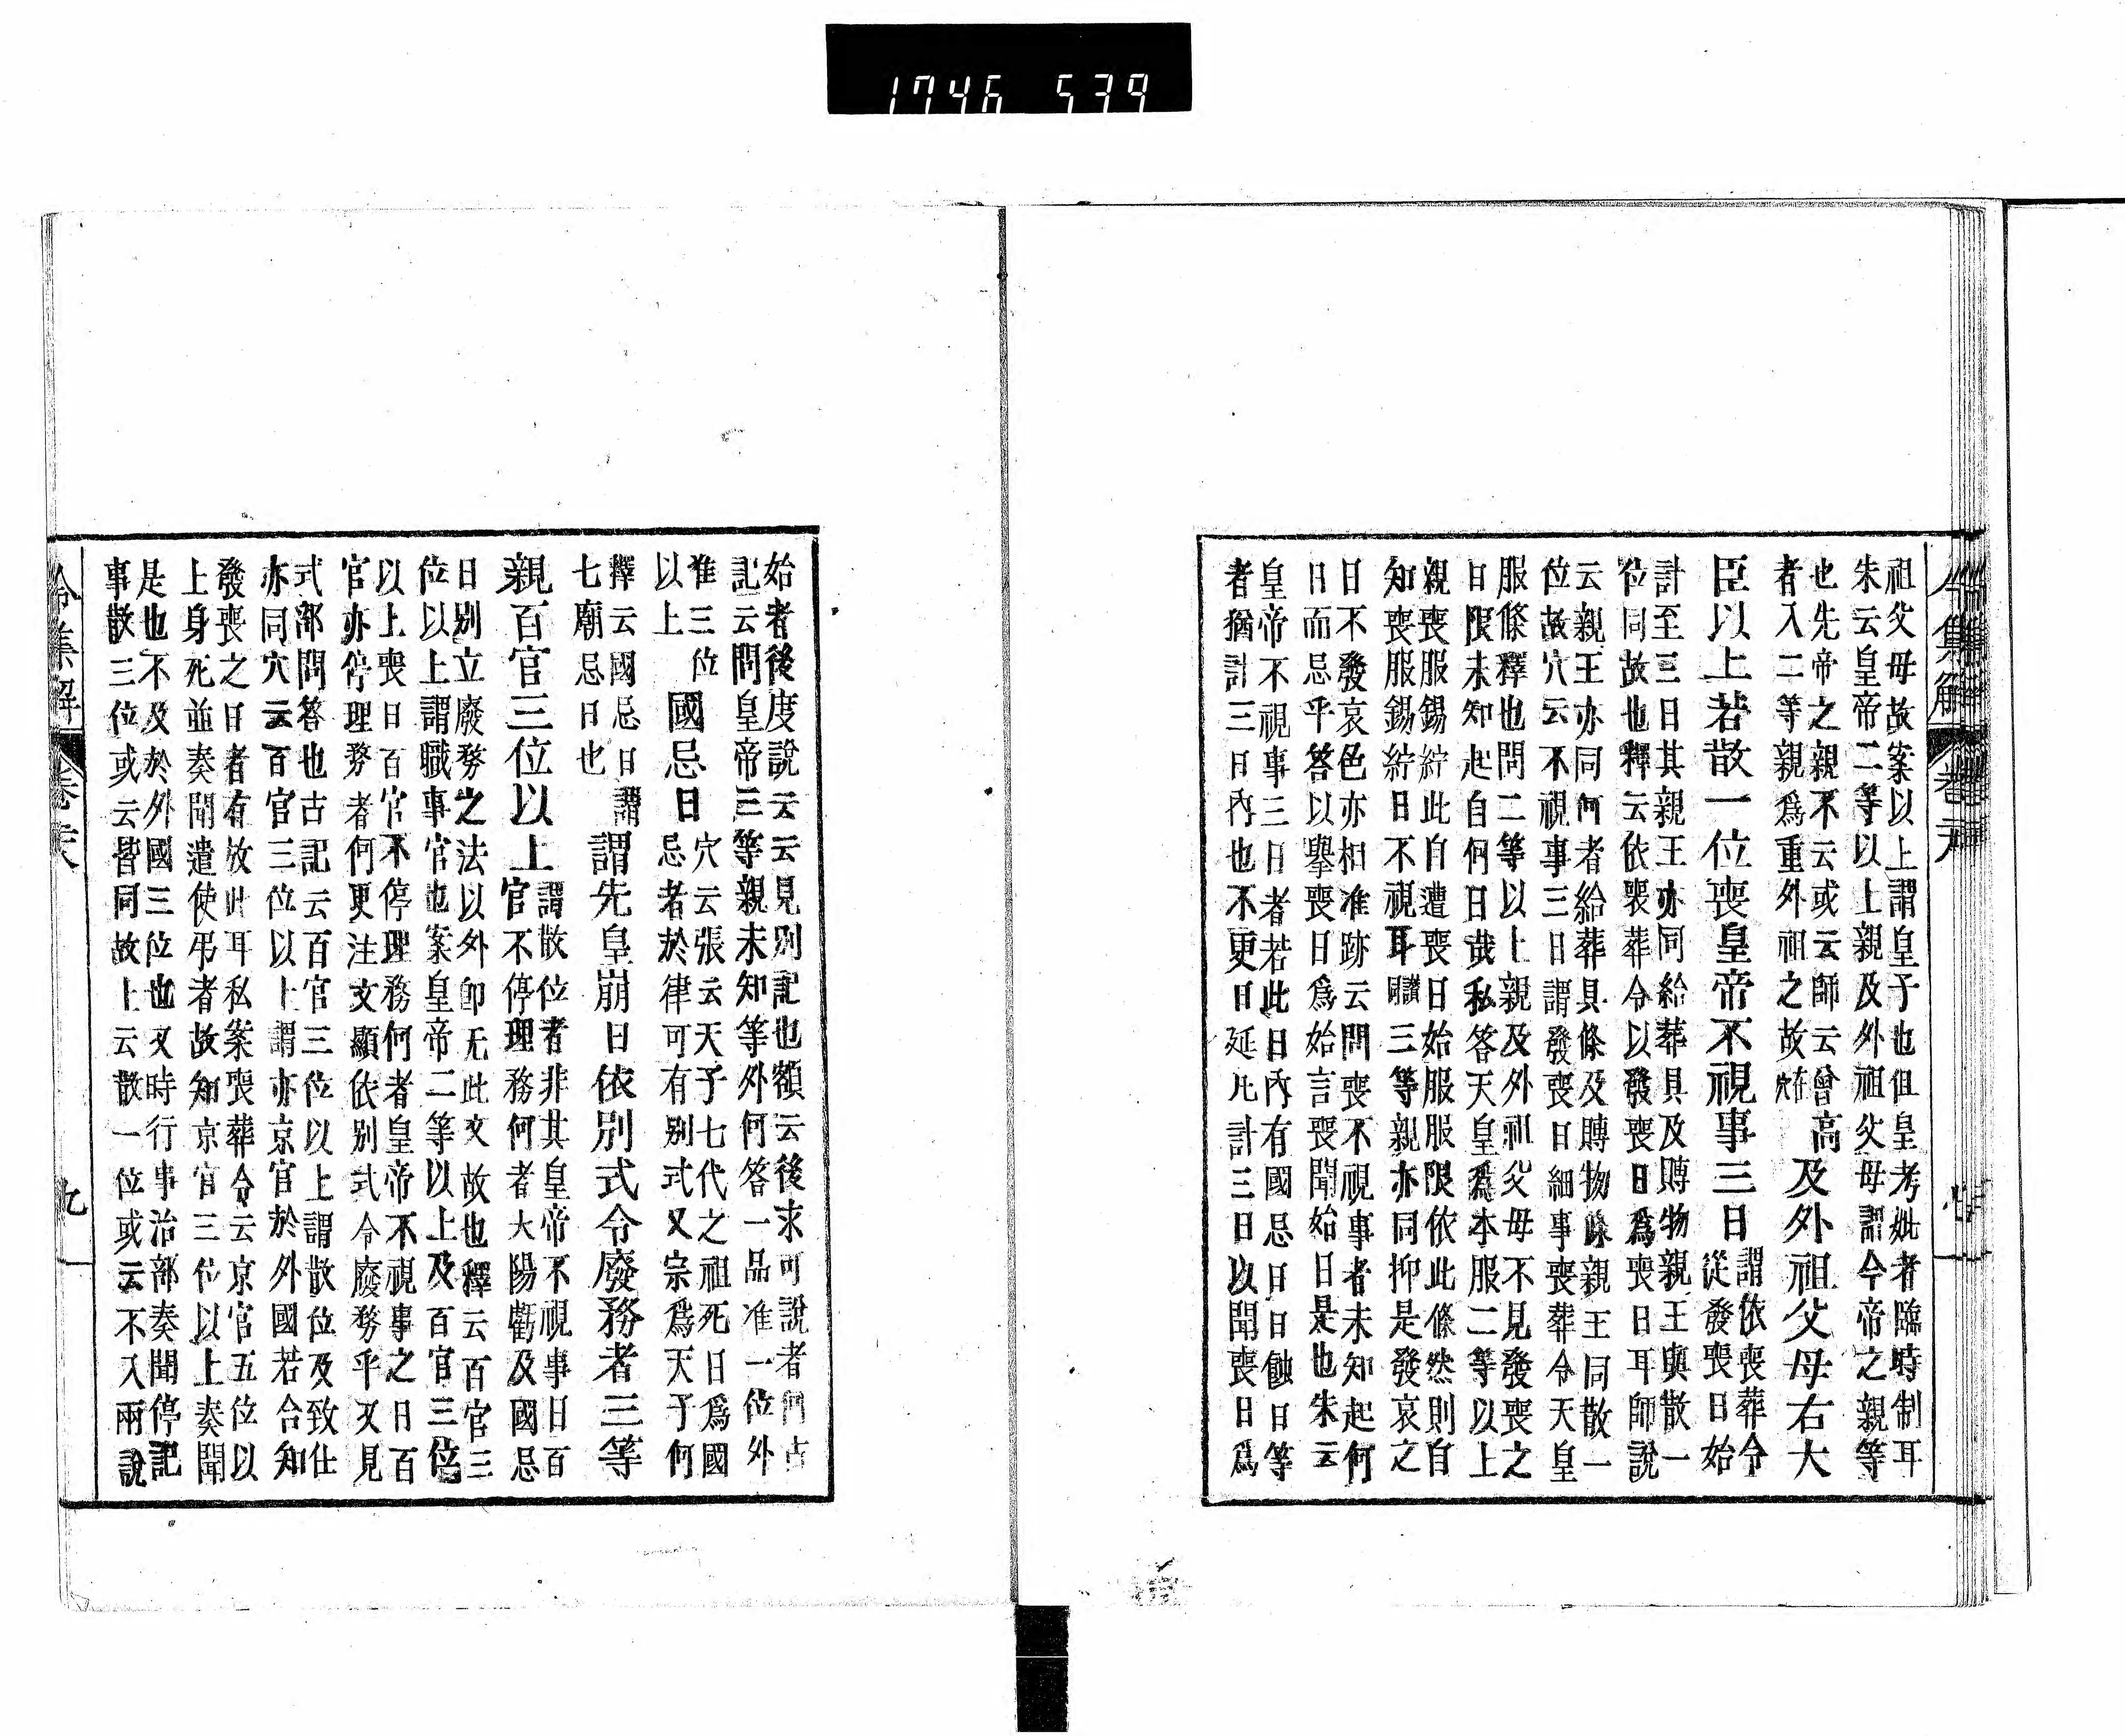 1746 539
祖父母故案以上謂皇子也但皇考妣者臨時制耳
朱云皇帝二等以上親及外祖父母謂今帝之親等
也先帝之親不云或云師云曾高
者入二等親爲重外祖之故在穴
及外祖父母右大
臣以上若散一位喪皇帝不視事三日
謂依喪葬令
從發喪日始
計至三日其親王亦同給葬具及賻物親王與散一
位同故也釋云依喪葬令以發喪日爲喪日耳師說
云親王亦同何者給葬具條及賻物條親王同散一
位故穴云不視事三日謂發喪日細事喪葬令天皇
服條釋也問二等以上親及外祖父母不見發喪之
日限未知起自何日哉私答天皇爲本服二等以上
親喪服錫紵此自遭喪日始服服限依此條然則自
知喪服錫紵日不視耳同讃三等親亦同抑是發哀之
日不發哀色亦相准跡云問喪不視事者未知起何
日而忌乎答以擧喪日爲始言喪聞始日是也朱云
皇帝不視事三日者若此日內有國忌日日蝕日等
者猶計三日內也不更日延凡計三日以聞喪日爲
令集解
始者後度說云云見別記也額云後求可說者們古
記云問皇帝三等親未知等外何答一品准一位外
准三位
以上
國忌日
穴云張云天子七代之祖死日爲國
忌者於律可有別式又宗爲天子何
擇云國忌日謂
七廟忌日也
謂先皇崩日依別式令廢務者三等
親百官三位以上
謂散位者非其皇帝不視事日百
官不停理務何者大陽虧及國忌
日別立廢務之法以外卽无此文故也釋云百官三
位以上謂職事官也案皇帝二等以上及百官三位
以上喪日百官不停理務何者皇帝不視事之日百
官亦停理務者何更注文顯依別式令廢務乎又見
式部問答也古記云百官三位以上謂散位及致仕
亦同穴云百官三位以上謂亦京官於外國若合知
發喪之日者有故此耳私案喪葬令云京官五位以
上身死並奏聞遣使弔者故知京官三位以上奏聞
是也不及於外國三位也又時行事治部奏聞停記
事散三位或云皆同故上云散一位或云不入兩說
令集解 卷 九